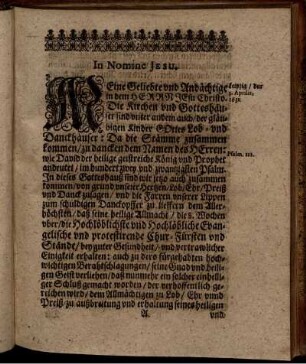 In Nomine JESU.
MEine Geliebte vnd Andächtige
in dem HERRN JEsu Christo.
Die Kirchen vnd Gotteshäu-
ser sind vnter andern auch/ der gläu-
bigen Kinder GOttes Lob- vnd
Danckhäuser: Da die Stämme zusammen
kommen/ zu dancken dem Namen des HErren:
wie David der heilige geistreiche König vnd Prophet
andeutet/ im hundert zwey vnd zwantzigsten Psalm.
In diesem Gotteshauß sind wir jetzo auch zusammen
kommen/ von grund vnserer Hertzen/ Lob/ Ehr/ Preiß
vnd Danck zusagen/ vnd die Farren vnserer Lippen
zum schuldigen Danckopffer zu lieffern dem Aller-
höchsten/ daß seine heilige Allmacht/ die 8. Wochen
vber/ die Hochlöblichste vnd Hochlöbliche Evan-
gelische vnd protestirende Chur-Fürsten vnd
Stände/ bey guter Gesundheit/ vnd vertrawlicher
Einigkeit erhalten: auch zu dero fürgehabten hoch-
wichtigen Berathschlagungen/ seine Gnad vnd heili-
gen Geist verliehen/ daß nunmehr ein solcher einhelli-
ger Schluß gemacht worden/ der verhoffentlich ge-
reichen wird/ dem Allmächtigen zu Lob/ Ehr vnnd
Preiß/ zu außbreitung vnd erhaltung seines heiligen
A. vnd
Leipzig/ den
3. Aprilis,
1631.
Psalm. 122.